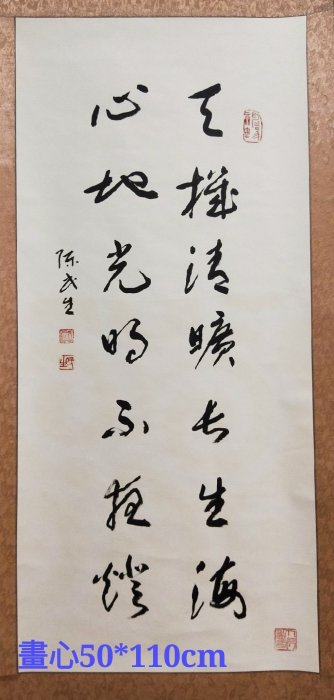 天機清曠長生海
心地光明不夜燈
陳武生
畫心50*110cm